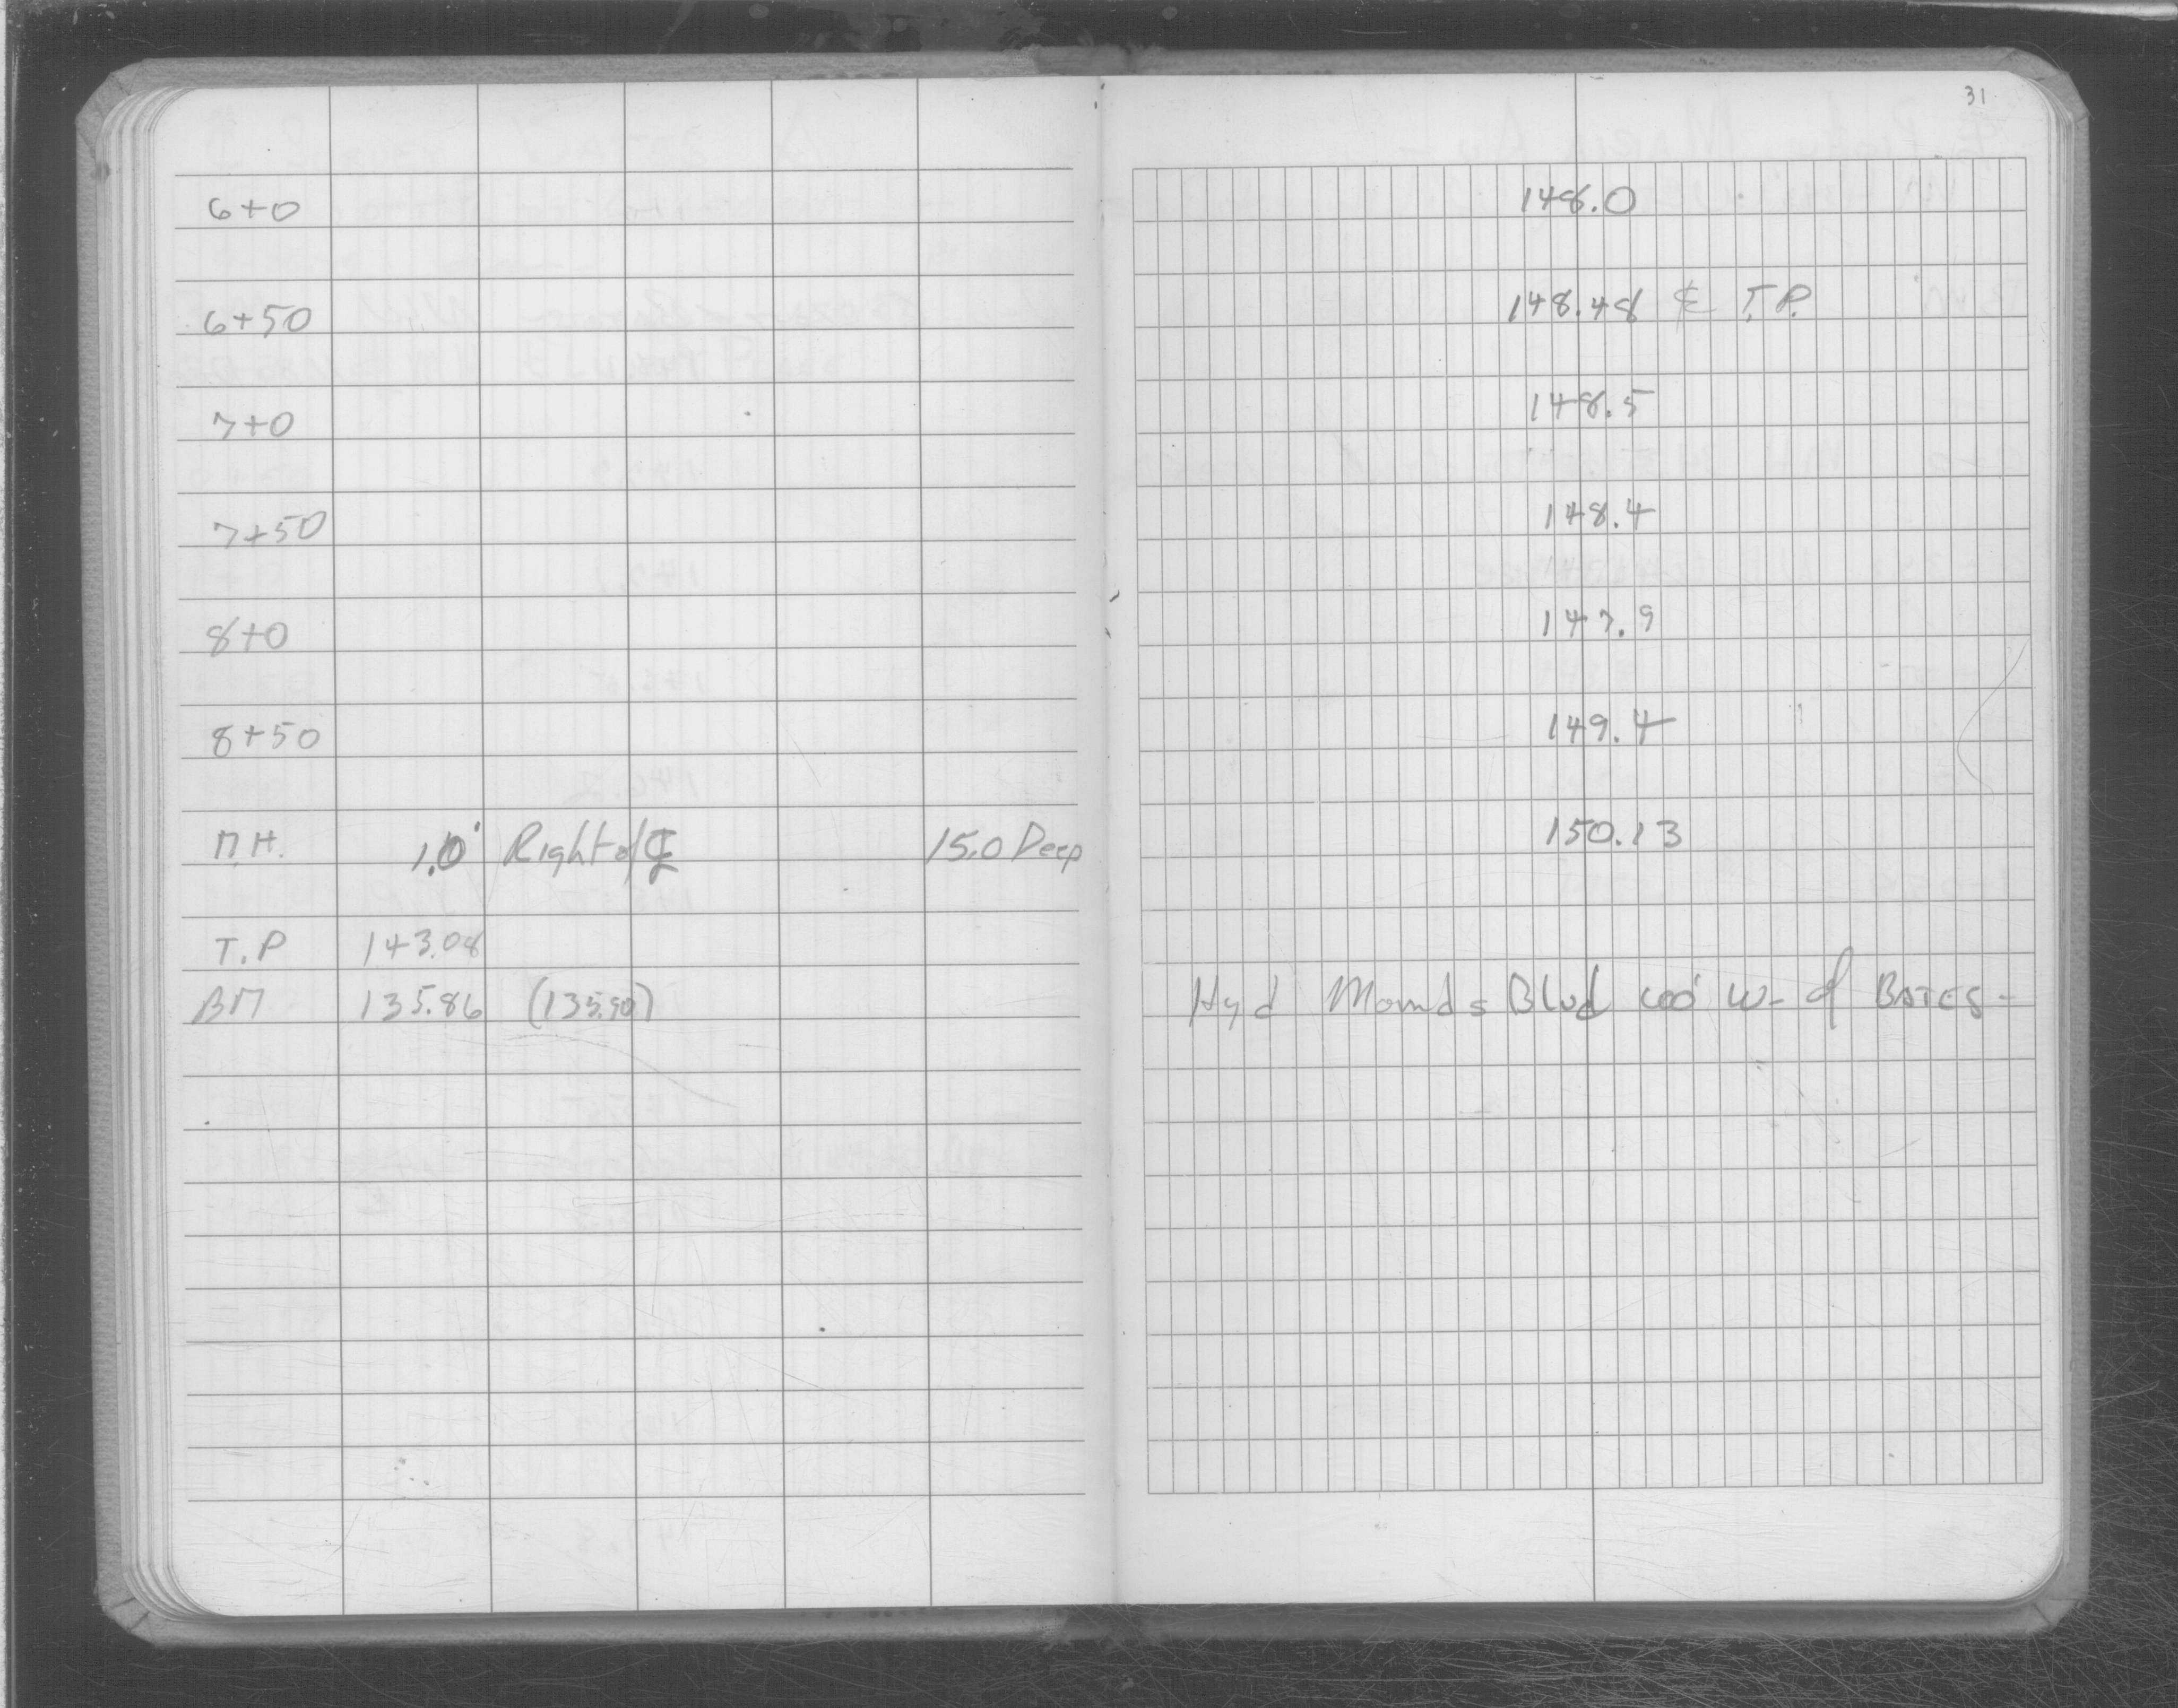 31
6+0 148.0
6+50 148.48 ℄ T.P.
7+0 148.5
7+50 148.4
8+0 147.9
8+50 149.4
M.H. 1.0' Right of ℄ 15.0 Deep 150.13
T.P 143.08
BM 135.86 (135.90) Hyd Mounds Blvd W- of BATES-